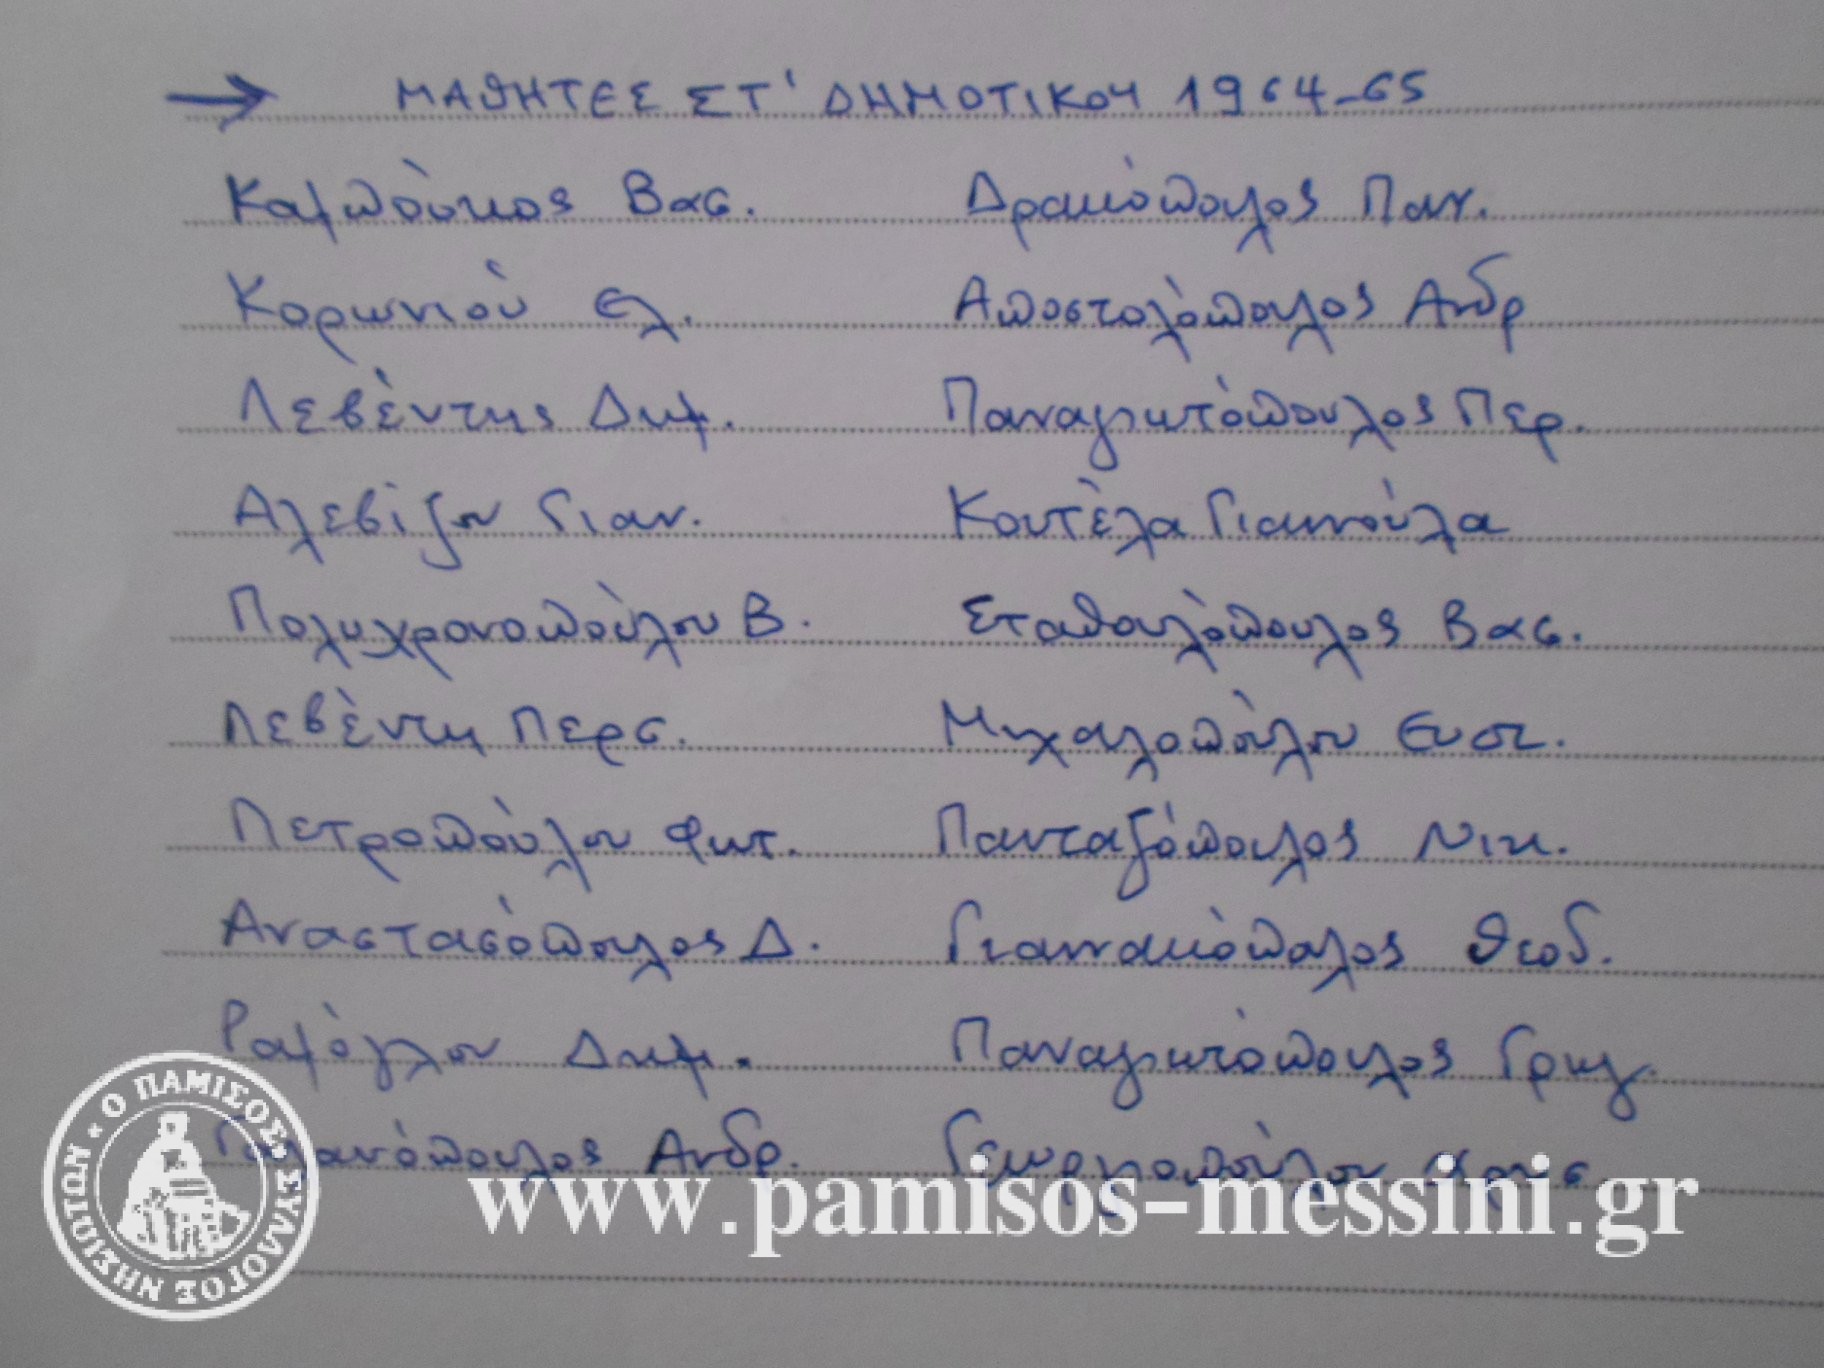 → ΜΑΘΗΤΕΣ ΣΤ' ΔΗΜΟΤΙΚΟΥ 1964-65
Καμπούκος Βας. Δρακόπουλος Παν.
Κορωνιού Ελ. Αποστολόπουλος Ανδρ
Λεβέντης Δημ. Παναγιωτόπουλος Περ.
Αλεβίζου Γιαν. Κουτέλα Γιαννούλα
Πολυχρονοπούλου Β. Σταθουλόπουλος Βας.
Λεβέντη Περς. Μιχαλοπούλου Ευστ.
Πετροπούλου Φωτ. Πανταζόπουλος Νικ.
Αναστασόπουλος Δ. Γιαννακόπουλος Θεοδ.
Ραμόγλου Δημ. Παναγιωτόπουλος Γρηγ.
Ανδρ. Γεωργιοπούλου
Ο ΠΑΜΙΣΟΣ ΣΥΛΛΟΓΟΣ ΝΗΣΙΩΤΩΝ
www.pamisos-messini.gr